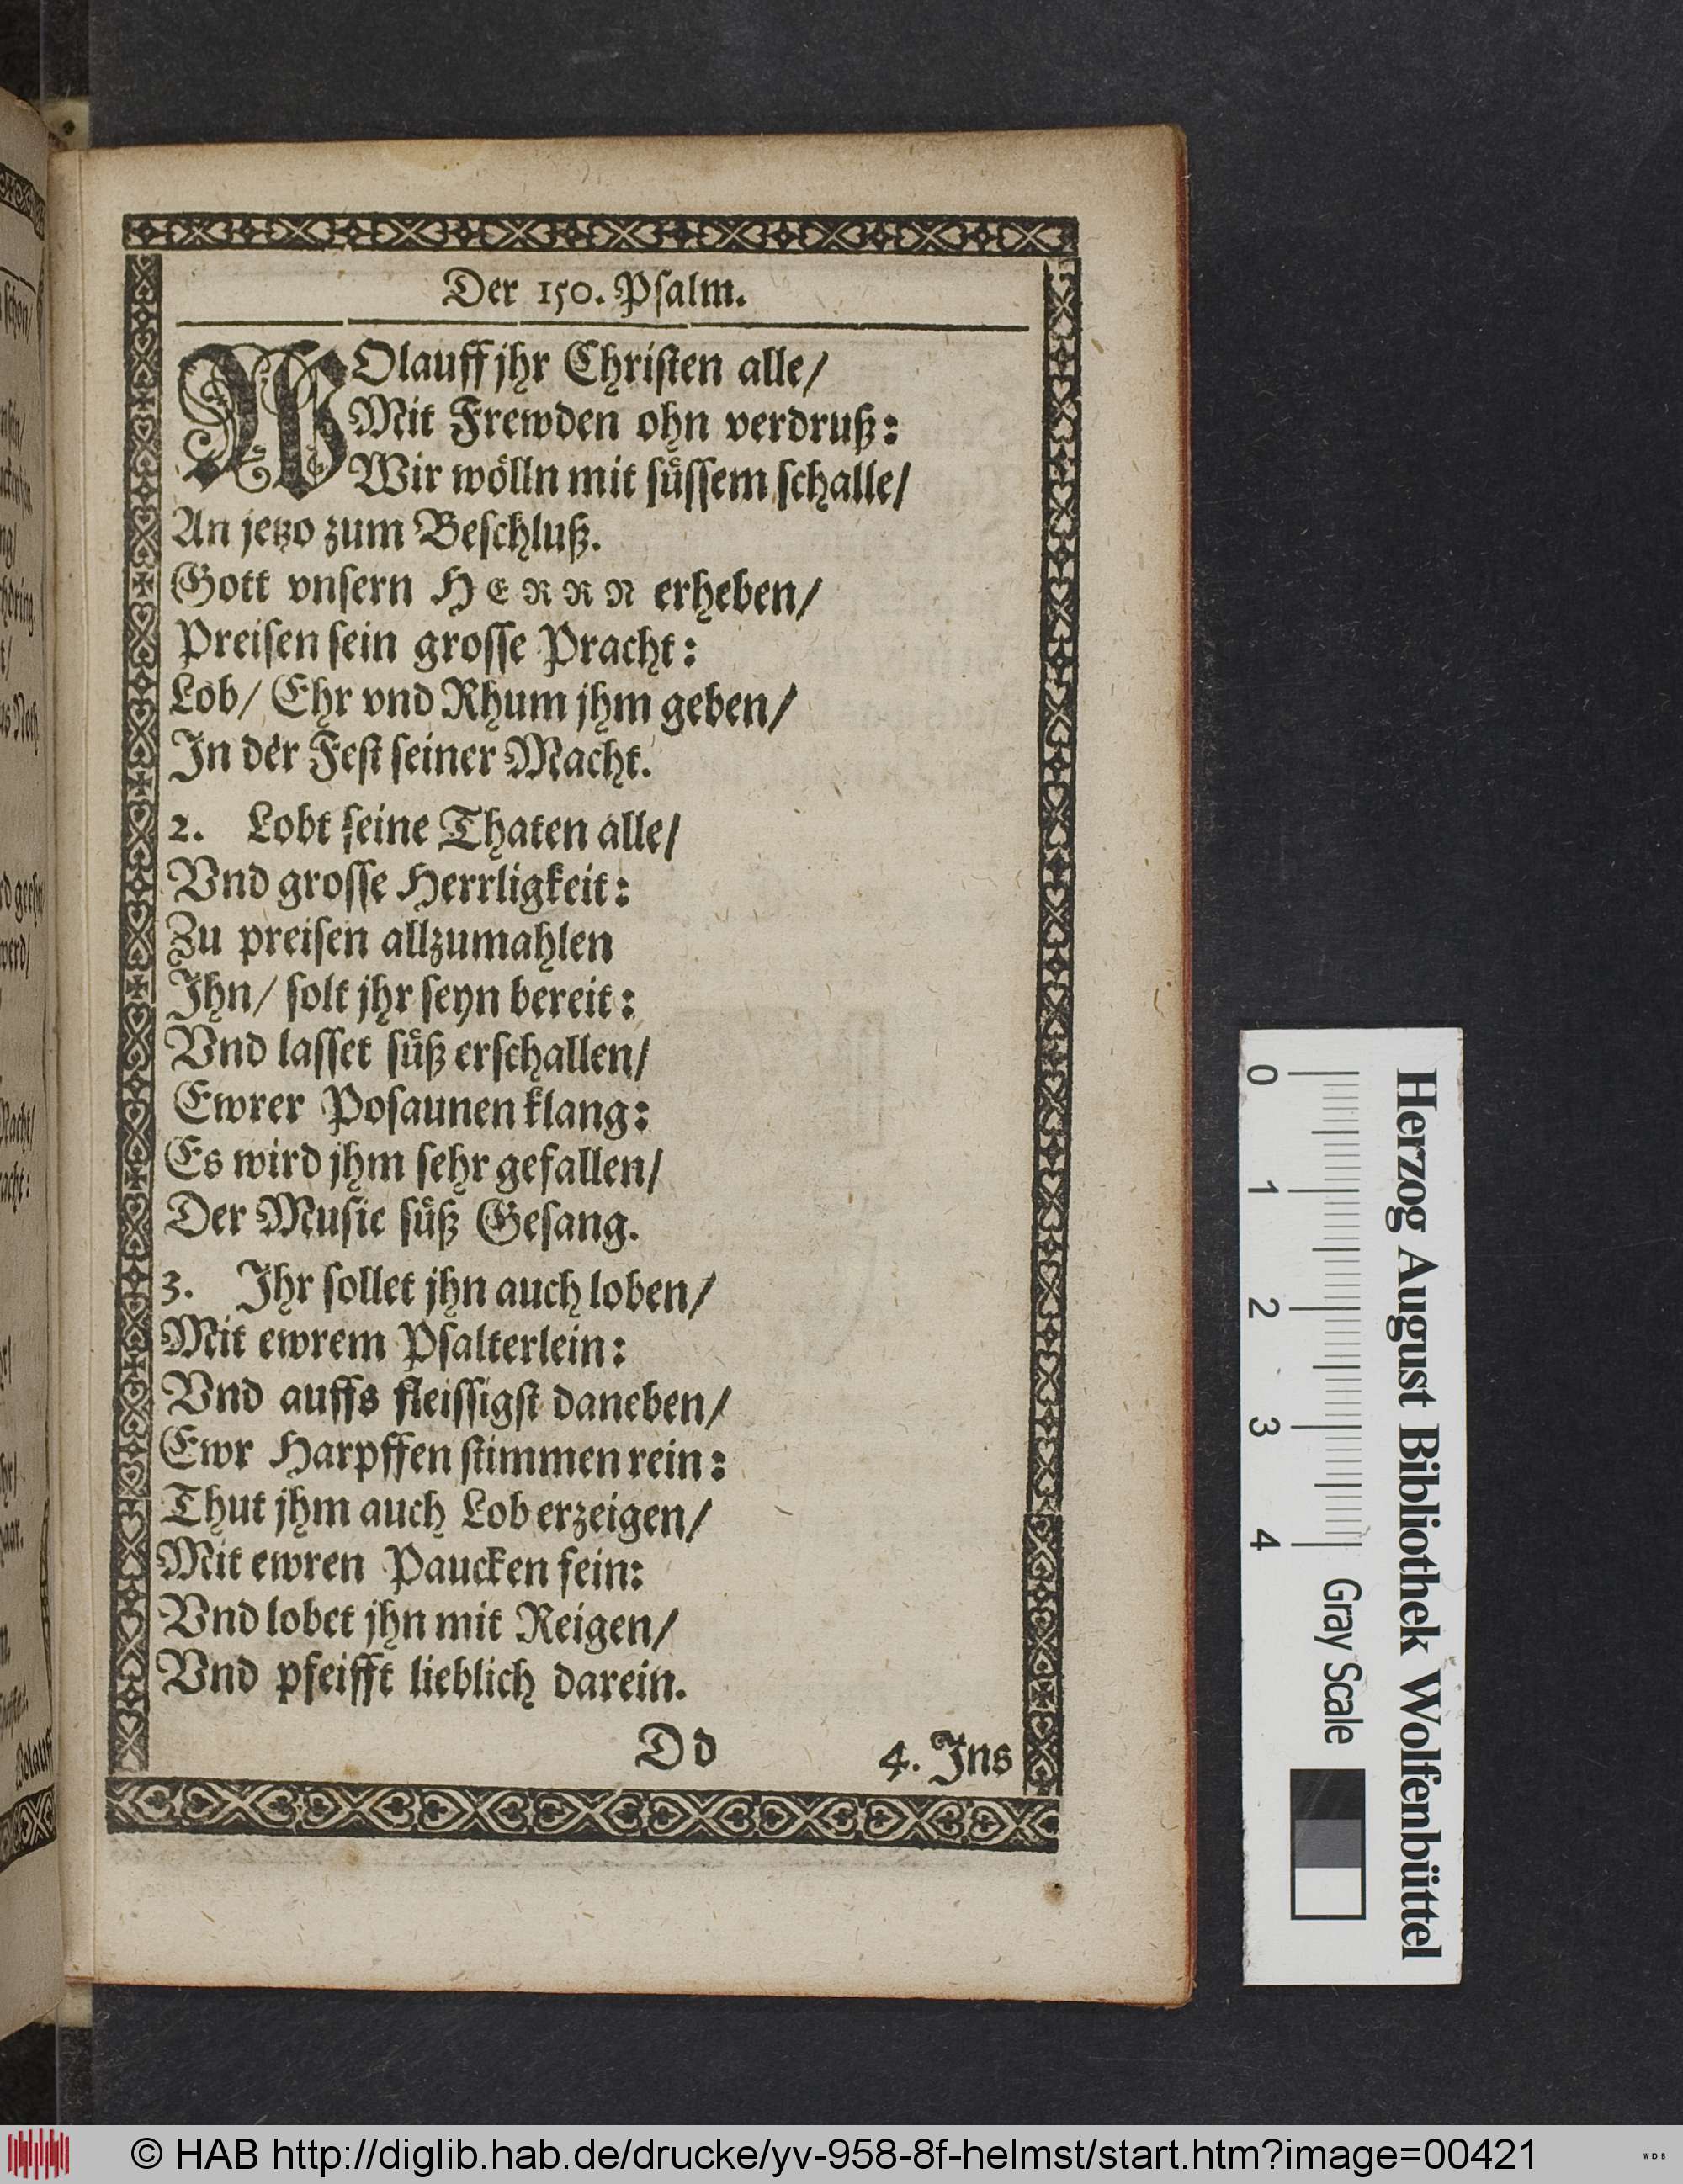 Der 150. Psalm.
WOlauff jhr Christen alle/
Mit Frewden ohn verdruß:
Wir wölln mit süssem schalle/
An jetzo zum Beschluß.
Gott vnsern HERRN erheben/
Preisen sein grosse Pracht:
Lob/ Ehr vnd Rhum jhm geben/
In der Fest seiner Macht.
2. Lobt seine Thaten alle/
Vnd grosse Herrligkeit:
Zu preisen allzumahlen
Ihn/ solt jhr seyn bereit:
Vnd lasset süß erschallen/
Ewrer Posaunen klang:
Es wird jhm sehr gefallen/
Der Music süß Gesang.
3. Ihr sollet jhn auch loben/
Mit ewrem Psalterlein:
Vnd auffs fleissigst daneben/
Ewr Harpffen stimmen rein:
Thut jhm auch Lob erzeigen/
Mit ewren Paucken fein:
Vnd lobet jhn mit Reigen/
Vnd pfeifft lieblich darein.
Dd 4. Ins
Herzog August Bibliothek Wolfenbüttel
0 1 2 3 4 Gray Scale
© HAB http://diglib.hab.de/drucke/yv-958-8f-helmst/start.htm?image=00421
WDB